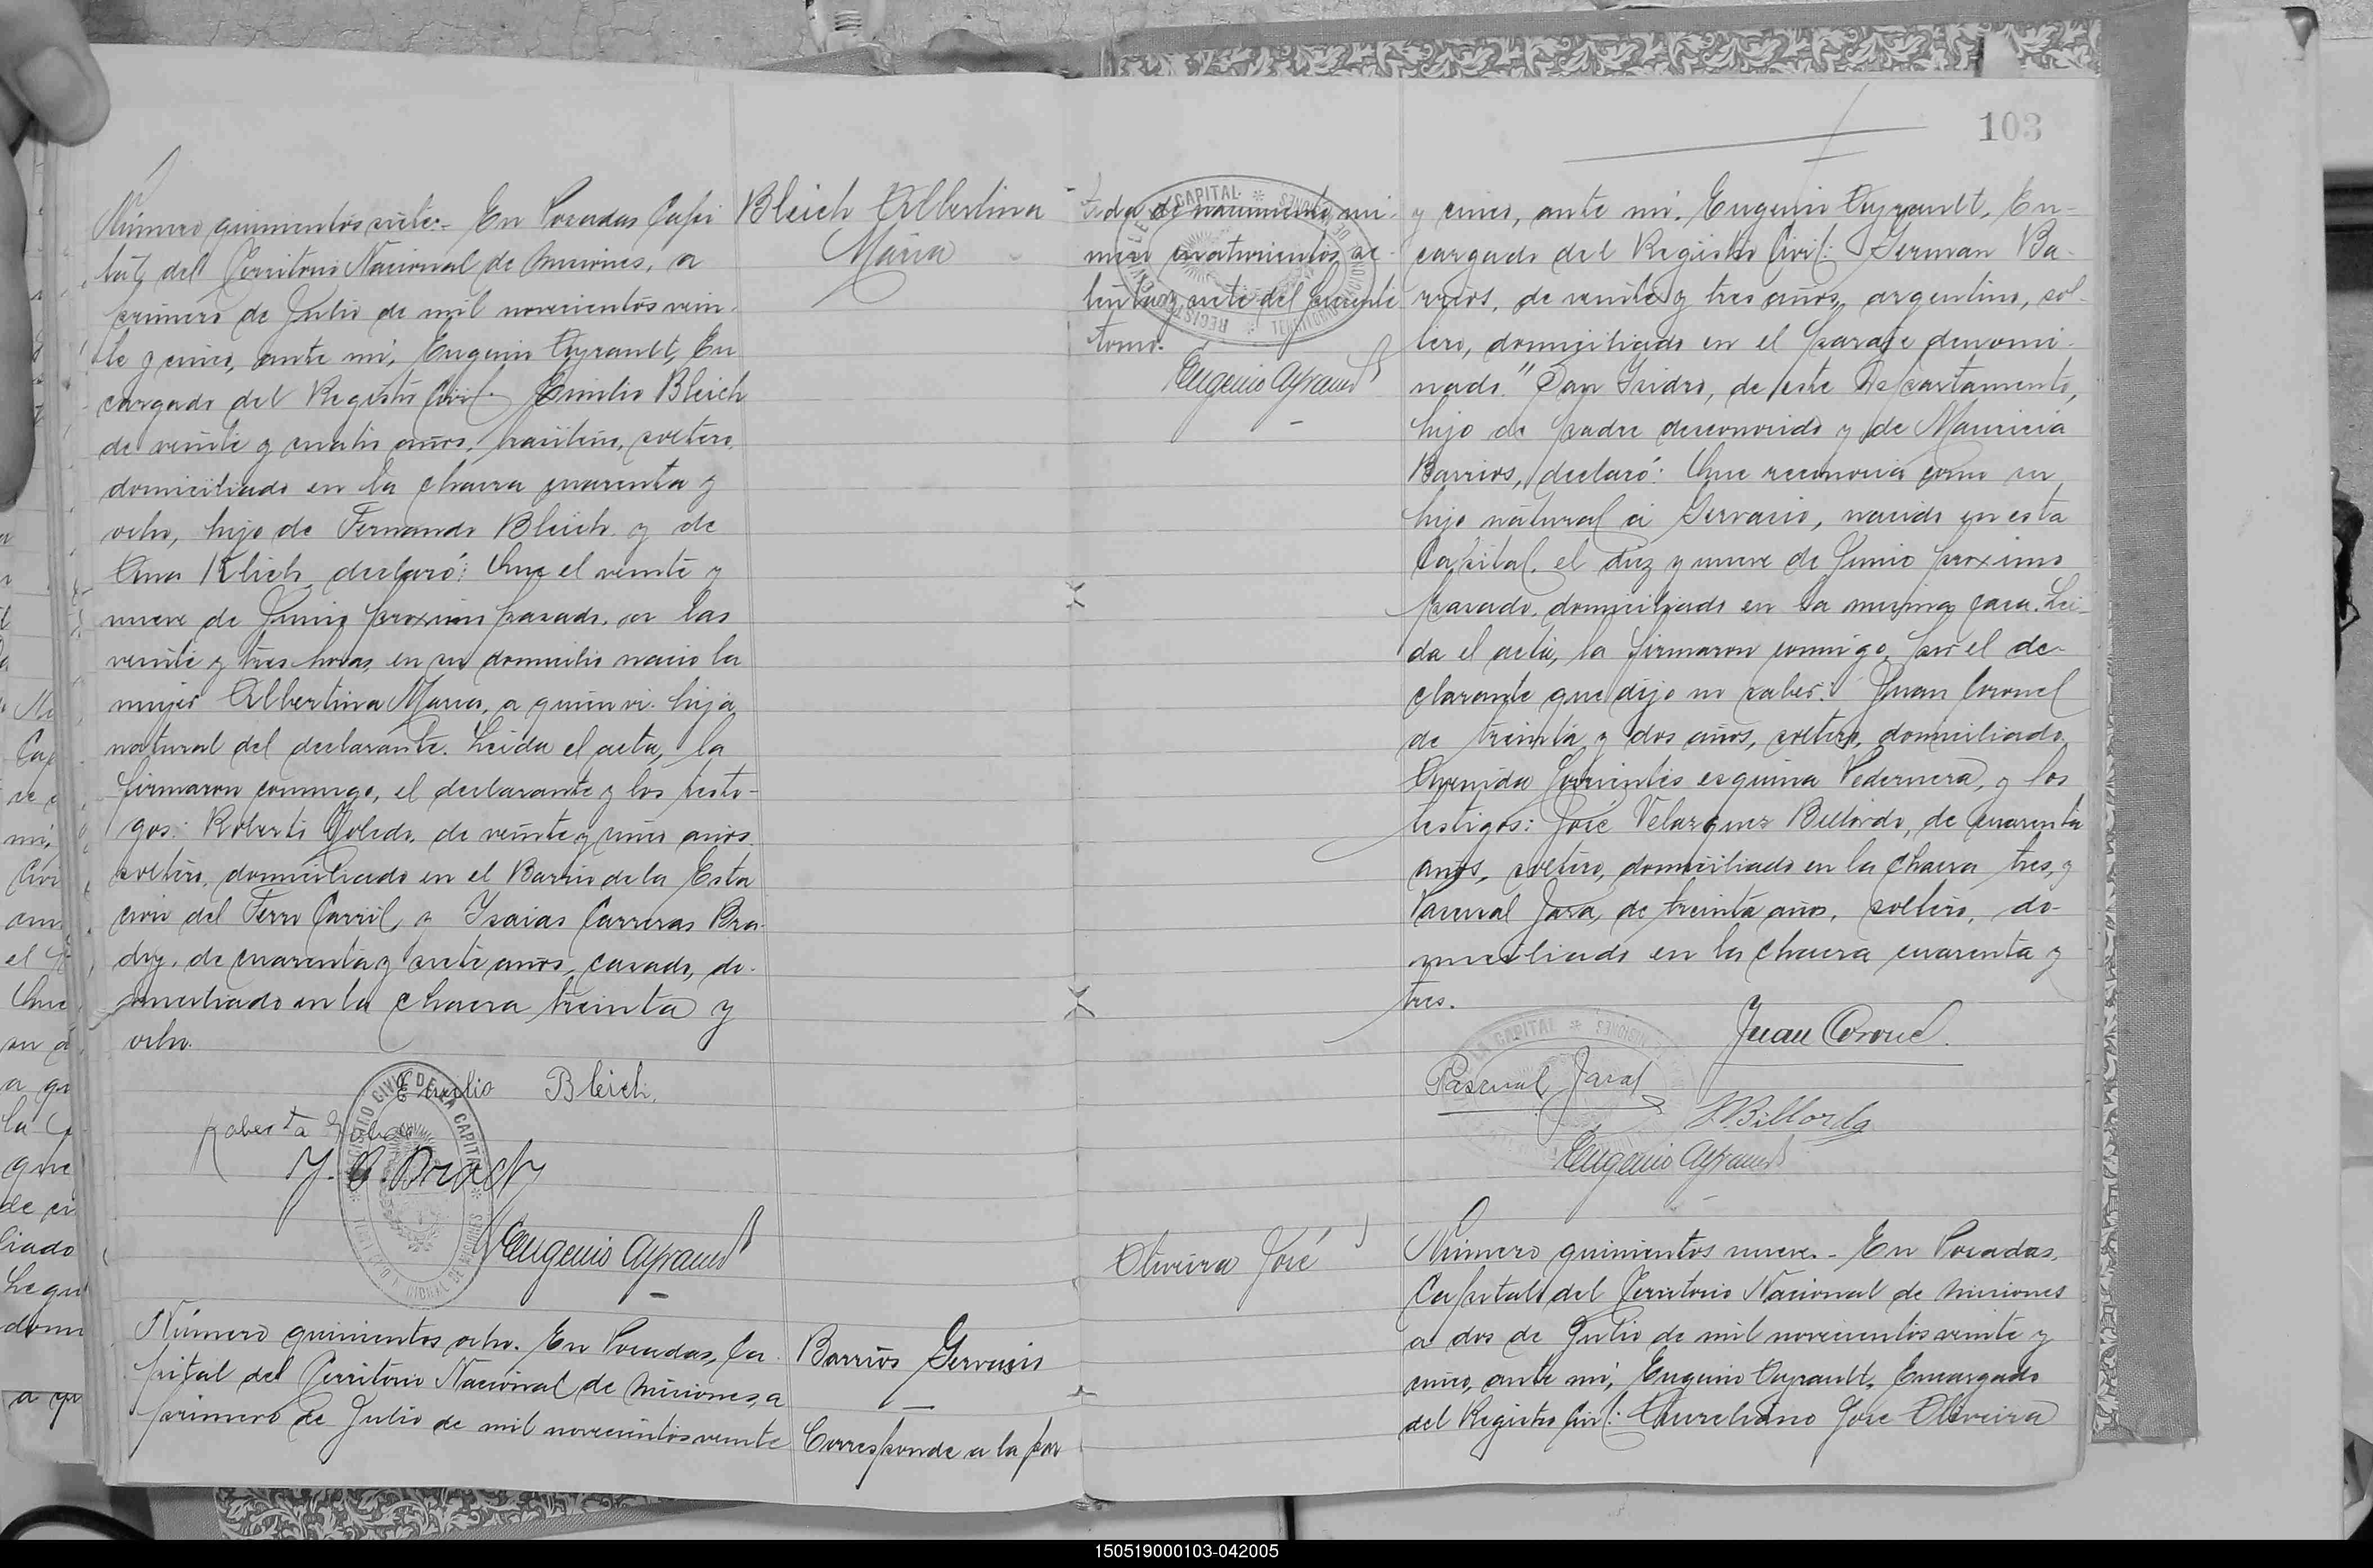 Número quinientos siete.- En Posadas Capi
tal, del Territorio Nacional de Misiones, a
primero de Julio de mil novecientos vein-
te y cinco, ante mí, Eugenio Ayrault, En
cargado del Registro Civil: Emilio Bleich
de veinte y cuatro años, brasileño, soltero,
domiciliado en la chacra cuarenta y
ocho, hijo de Fernando Bleich y de
Ana Klich, declaró: Que el veinte y
nueve de Junio proximo pasado, a las
veinte y tres horas, en su domicilio nació la
mujer Albertina Maria, a quien vi. hija
natural del declarante. Leida el acta, la
firmaron conmigo, el declarante y los testi-
gos: Roberto Toledo, de veinte y cinco años,
soltero, domiciliado en el Barrio de la Esta
ción del Ferro Carril, y Ysaias Carreras Bra-
dy, de cuarenta y siete años, casado, do-
miciliado en la chacra treinta y
ocho.
Emilio Bleich.
Y. C. Brady
Eugenio Ayrault
Bleich Albertina
Maria
REGISTRO CIVIL DE LA CAPITAL
Número quinientos ocho. En Posadas, Ca-
pital del Territorio Nacional de Misiones, a
primero de Julio de mil novecientos veinte
Barrios Gervasio
Corresponde a la par
103
tida de nacimiento nú-
mero cuatrocientos se-
tenta y siete del presente
tomo.
Eugenio Ayrault
y cinco, ante mí, Eugenio Ayrault, En-
cargado del Registro Civil: German Ba-
rrios, de veinte y tres años, argentino, sol-
tero, domiciliado en el paraje denomi-
nado "San Ysidro, de este Departamento,
hijo de padre desconocido y de Mauricia
Barrios, declaró: Que reconocia como su
hijo natural a Gervasio, nacido en esta
Capital, el diez y nueve de Junio proximo
pasado, domiciliado en la misma casa. Lei-
da el acta, la firmaron conmigo, por el de-
clarante que dijo no saber: Juan Coronel
de treinta y dos años, soltero, domiciliado
Avenida Corrientes esquina Pedernera, y los
testigos: José Velazquez Billordo, de cuarenta
años, soltero, domiciliado en la chacra tres, y
Pascual Jara, de treinta años, soltero, do-
miciliado en la chacra cuarenta y
tres.
Juan Coronel.
Pascual Jara
Billordo
Eugenio Ayrault
Oliveira José
Número quinientos nueve.- En Posadas,
Capital del Territorio Nacional de Misiones
a dos de Julio de mil novecientos veinte y
cinco, ante mí, Eugenio Ayrault, Encargado
del Registro Civil: Aureliano José Oliveira
150519000103-042005